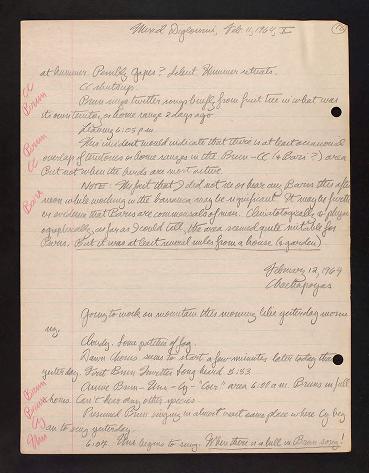 Mixed Diglossas, Feb. 11, 1964, V
at hummer. Possibly gapes? Silent. Hummer retreats.
CC shuts up.
CC
Brun
Brun sings twitter songs briefly from fruit tree in what was
its own territory or home range 2 days ago
Leaving 6:05 p.m.
This incident would indicate that there is at least occasional
Brun
overlap of territories or home ranges in the Brun-CC (& Bar ?) area
CC
But not when the birds are most active.
NOTE: The fact that I did not see or hear any Bars this after
Bar
noon while working in the barranca may be significant. It may be further
evidence that Bars are commensals of man. Climatologically, & physi
ographically, as far as I could tell, the area seemed quite suitable for
Bars. But it was at least several miles from a house (& garden)
February 12, 1964
Chachapoyas
Going to work on mountain this morning like yesterday morn
ing.
Cloudy. Some patches of fog.
Dawn chorus seems to start a few minutes later today than
yesterday. First Brun Twitter Song heard 5:53
Brun
Arrive Brun - - Cy - "Coer" area 6:01 a.m. Bruns in full
Brun
chorus. Can't hear any other species
Cy
Presumed Brun singing in almost exact same place where Cy beg
an to sing yesterday.
6:04. begins to sing. When there is a lull in Brun song!